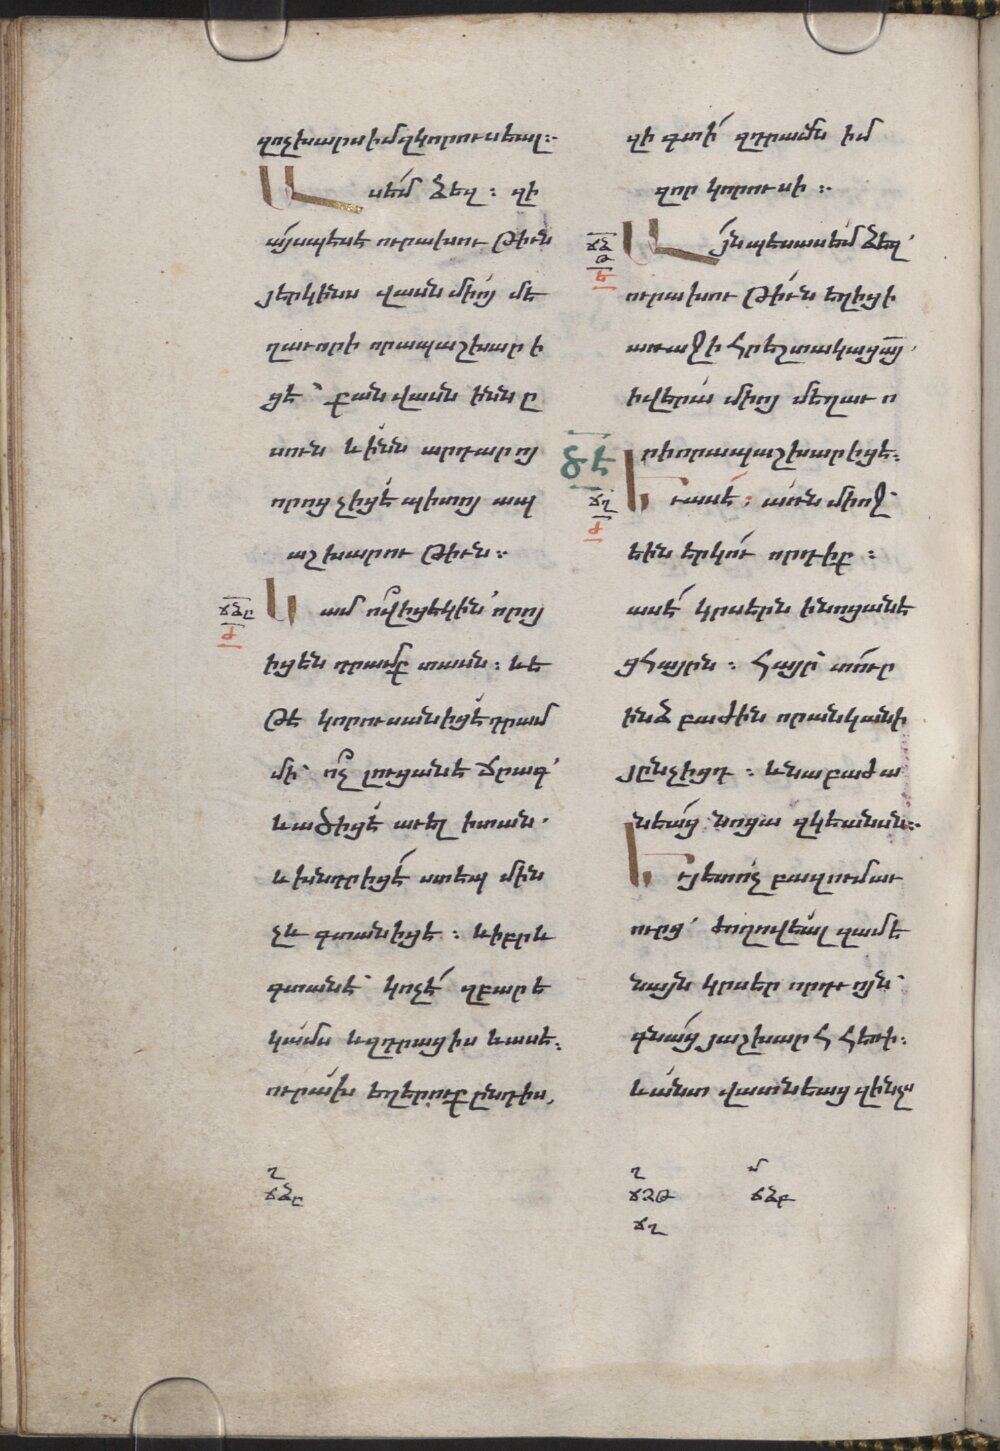 զոչխարս իմ զկորուսեալ։
Ասեմ ձեզ։ զի
այսպէս է ուրախութիւն
յերկինս վասն միոյ մե
ղաւորի որ ապաշխարի
ցէ՝ քան վասն իննը
սուն և ինն արդարոյ
որոց չիցէ պիտոյ ապ
աշխարութիւն։
ՃՁԸ
Ժ
Կամ ո՞վ իցէ կին՝ որոյ
իցեն դրամք տասն։ և ե
թէ կորուսանիցէ դրամ
մի՝ ո՞չ լուցանէ ճրագ՝
և ածիցէ աւել ի տան՝
և խնդրիցէ ստէպ մին
չև գտանիցէ։ և իբրև
գտանէ՝ կոչէ զբարե
կամս և զդրացիս և ասէ։
ուրախ եղերուք ընդ իս,
Ղ
ՃՁԸ
զի գտի զդրամն իմ
զոր կորուսի։
ՃՁ
Թ
Ե
Այնպէս ասեմ ձեզ՝
ուրախութիւն եղիցի
առաջի հրեշտակաց այ՝
ի վերայ միոյ մեղաւո
րի որ ապաշխարիցէ։
ԾԷ
ՃՂ
Ժ
Եւ ասէ։ առն միոջ՝
էին երկու որդիք։
ասէ կրսերն ի նոցանէ
ցհայրն։ հայր տուր
ինձ բաժին որ անկանի
յընչիցդ։ և նա բաժա
նեաց նոցա զկեանսն։
Եւ յետ ոչ բազում աւ
ուրց՝ ժողովեալ զամե
նայն կրսեր որդւոյն՝
գնաց յաշխարհ հեռի։
և անտ վատնեաց զինչս
Ղ
ՃՁԹ
ՃՂ
Մ
ՃՁԲ